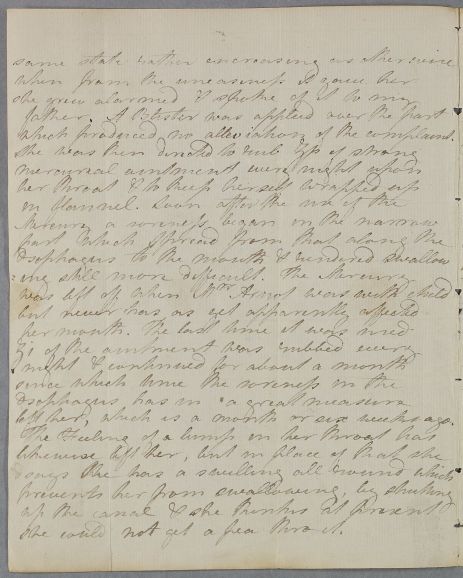 same state rather encreasing as otherwise
when from the uneasiness it gave her
she grew alarmed & spoke of it to my
father. A Blister was applied over the part
which produced no alleviation of the complaint.
She was then directed to rub of strong
mercurial ointment every night upon
her throat & to keep herself wrapped up
in flannel. Soon after the use of the
Mercury a soreness began in the narrow
part which spread from that along the
Esophagus to the mouth & rendered swallow
ing still more difficult. The Mercury
was left off when Mrs Arnot was with child
but never has as yet apparently affected
her mouth. The last time it was used
of the ointment was rubbed every
night & continued for about a month
since which time the soreness in the
Esophagus has in a great measure
left her, which is a month or six weeks ago.
The Feeling of a lump in her throat has
likewise left her, but in place of that she
says she has a swelling all round which
prevents her from swallowing, by shutting
up the canal & she thinks at present
she could not get a pea thro it.